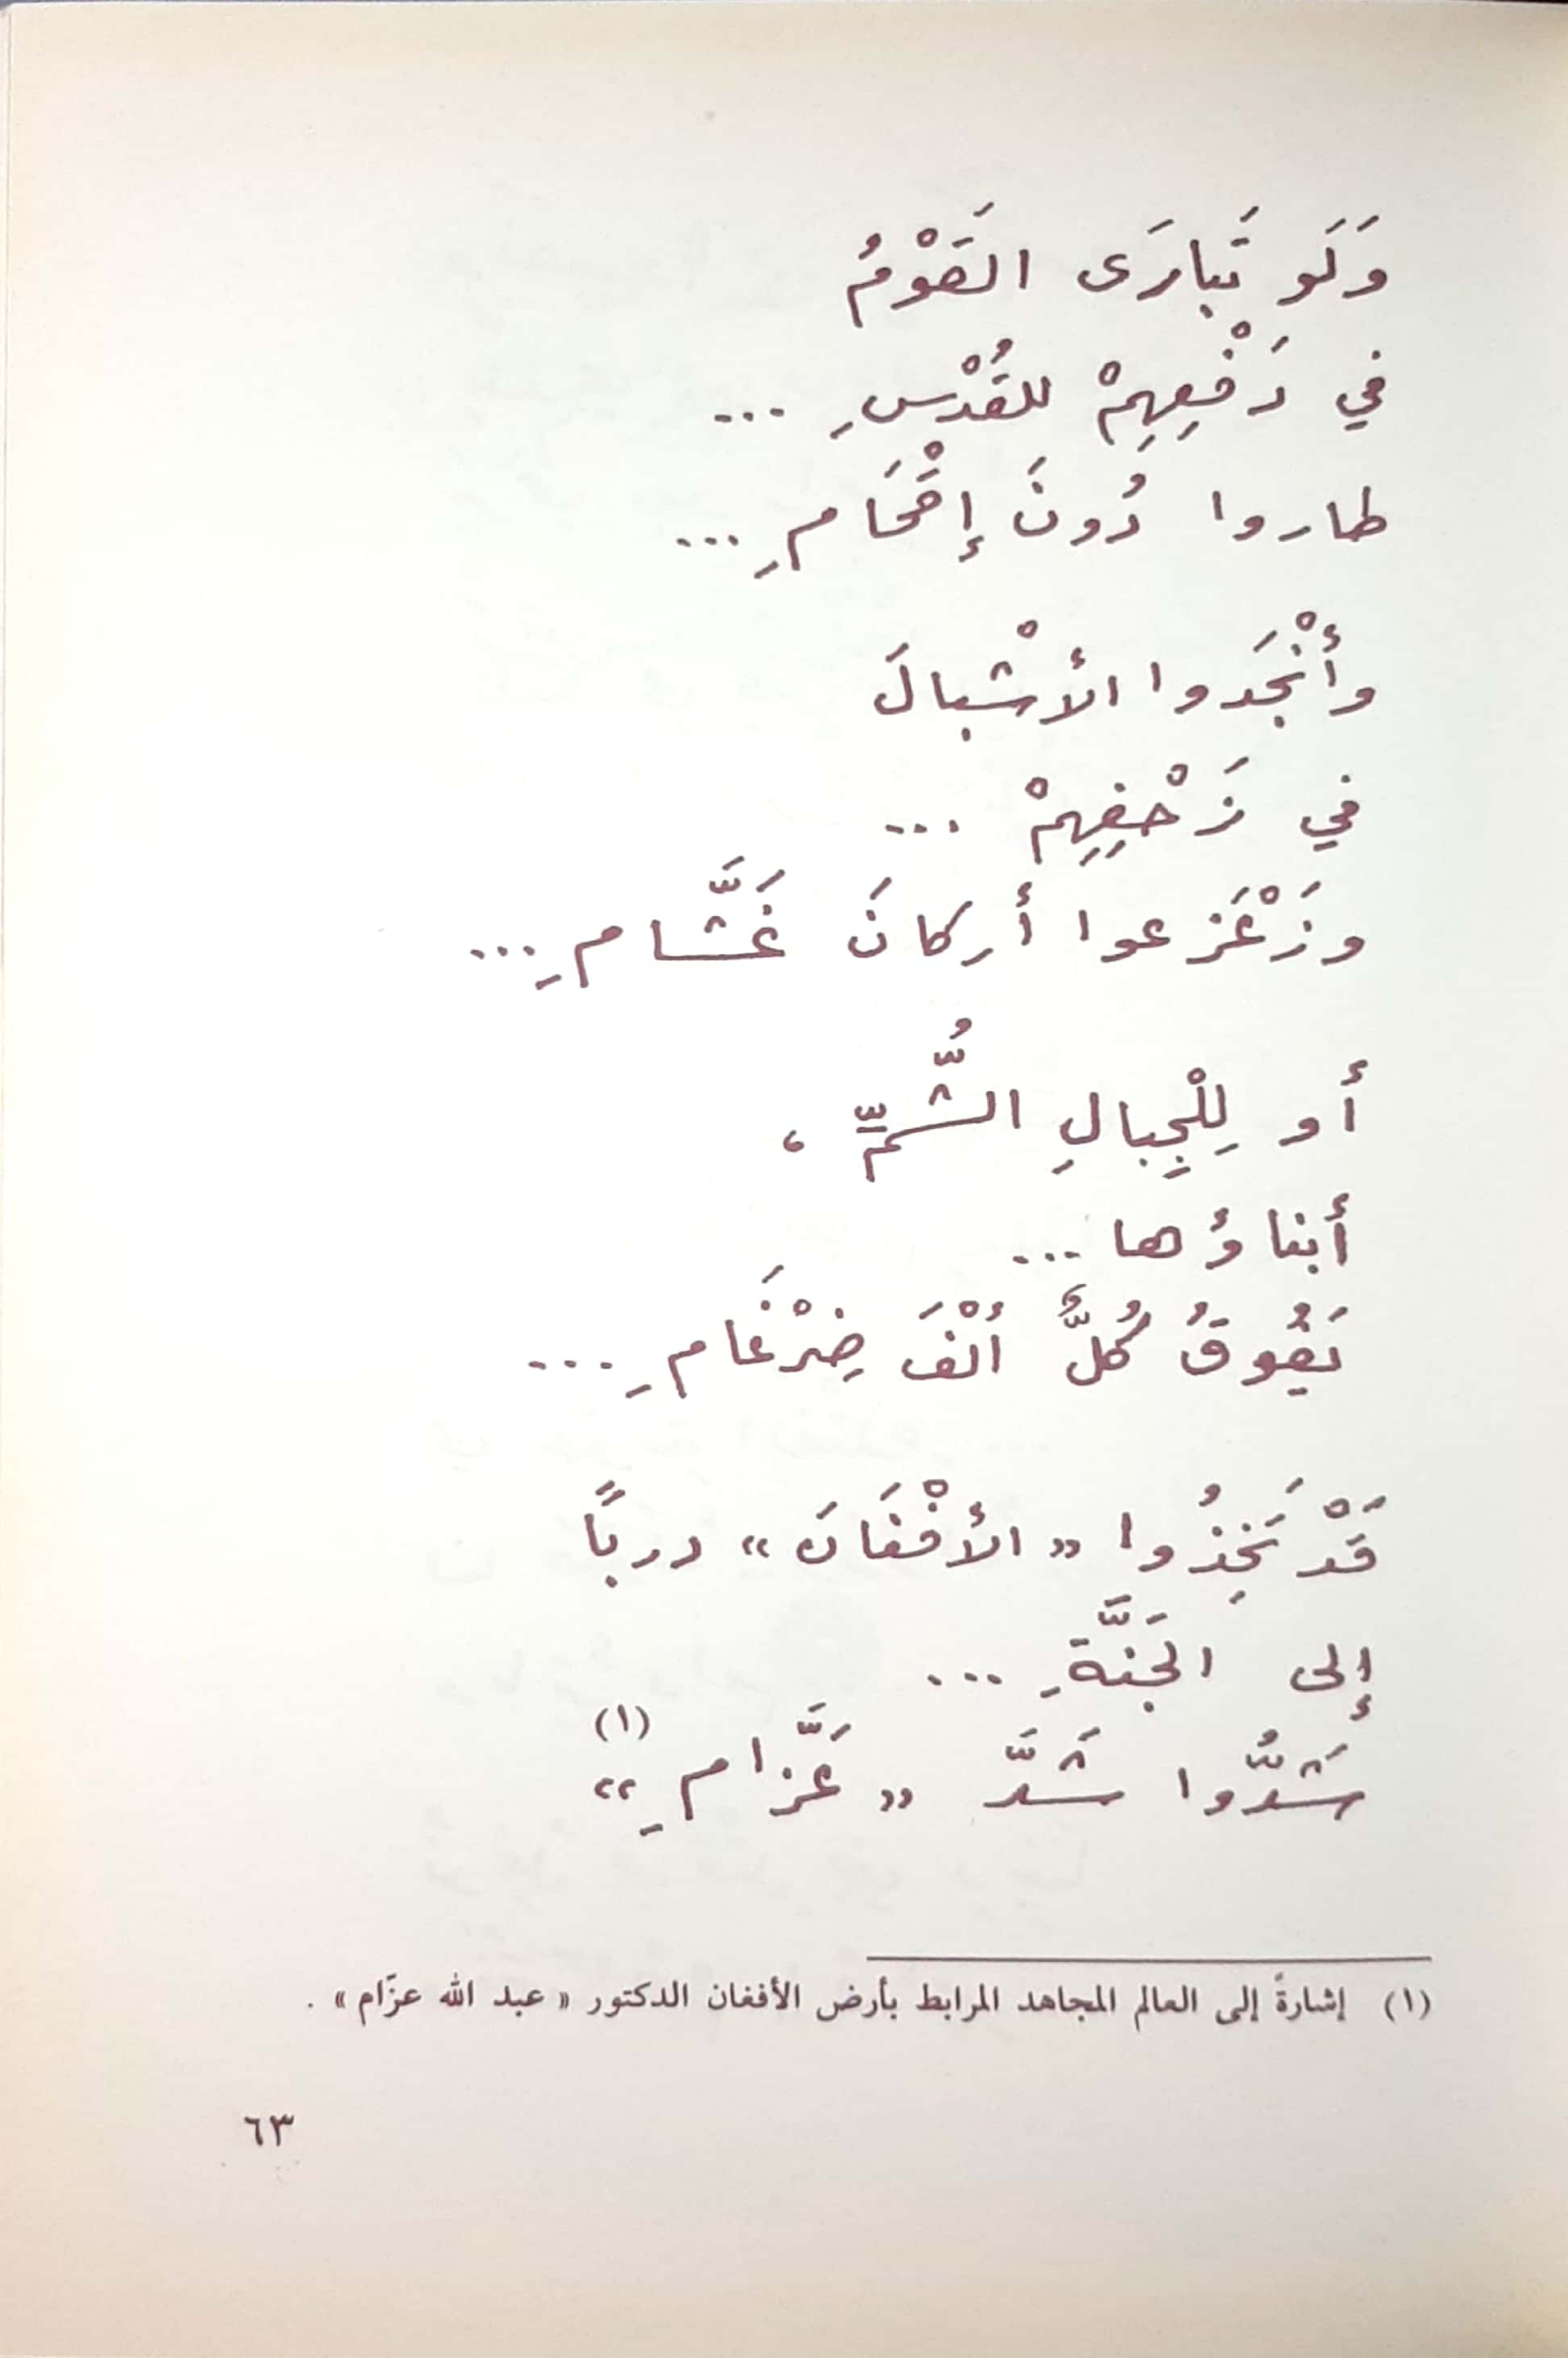 وَلَو تَبارَى القَوْمُ
في دَفْعِهِمْ للقُدْسِ ...
طاروا دُونَ إقْحَامِ ...
وأَنْجَدوا الأشْبالَ
في زَحْفِهِمْ ...
وزَعْزَعوا أركانَ غَشَّامِ ...
أو لِلْجِبالِ الشُّمِّ ،
أبناؤُها ...
يَفُوقُ كُلٌّ ألْفَ ضِرْغَامِ ...
قَدْ تَخِذُوا « الأفْغَانَ » دربًا
إلى الجَنَّةِ ...
شَدُّوا شَدَّ « عَزَّامِ » (١)
(١) إشارةً إلى العالم المجاهد المرابط بأرض الأفغان الدكتور « عبد الله عزّام » .
٦٣